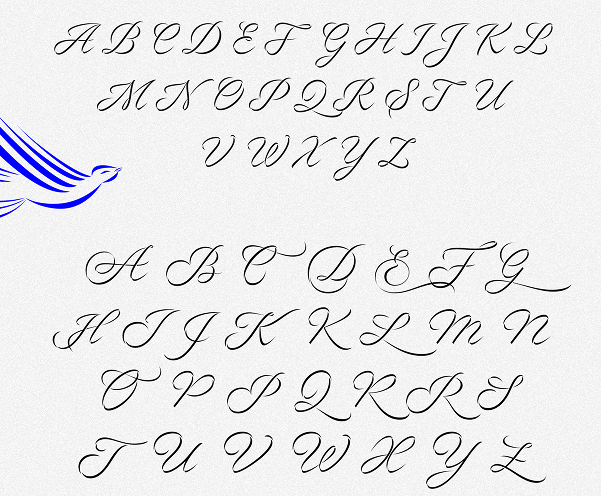 A B C D E F G H I J K L
M N O P Q R S T U
V W X Y Z
A B C D E F G
H I J K K L M N
O P P Q R R S
T U V W X Y Z